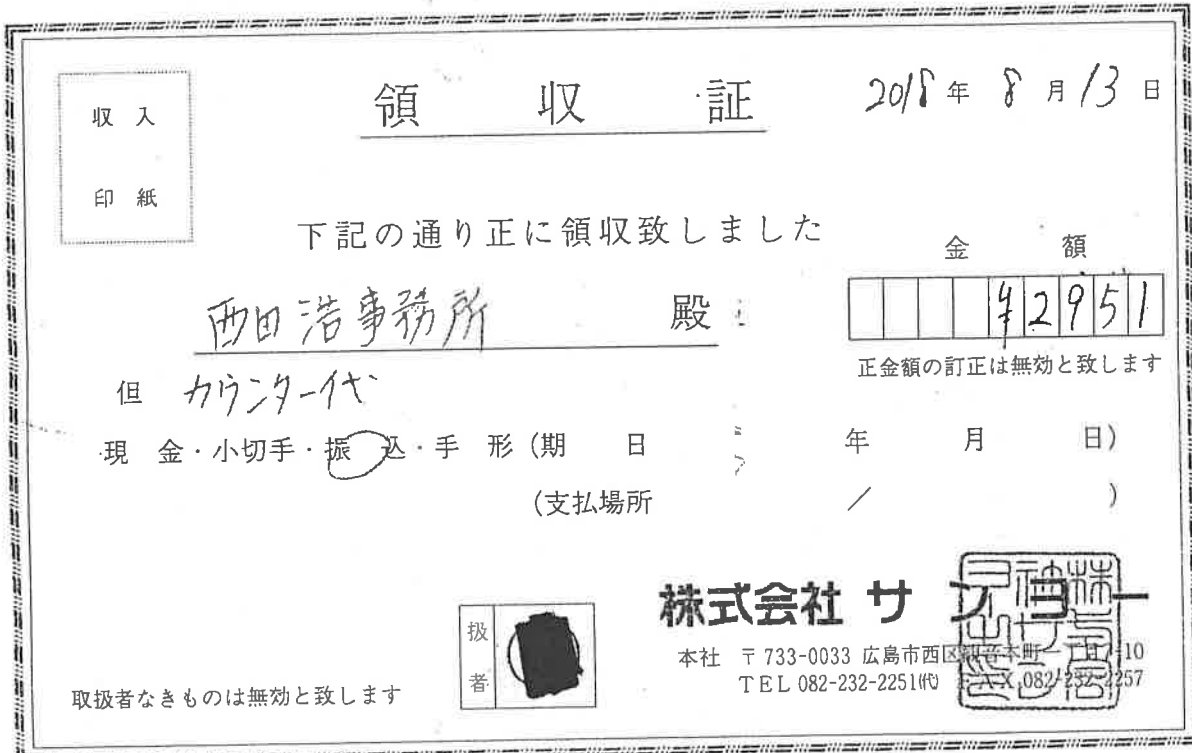 収入
印紙
領収証
2018年8月13日
下記の通り正に領収致しました
金額
西田浩事務所 殿
¥2951
正金額の訂正は無効と致します
但 カウンター代
現金・小切手・振込・手形(期日 年 月 日)
(支払場所 / )
株式会社サンヨー
扱者
本社 〒733-0033 広島市西区観音本町一丁目 -10
TEL 082-232-2251㈹ FAX 082-232-2257
取扱者なきものは無効と致します